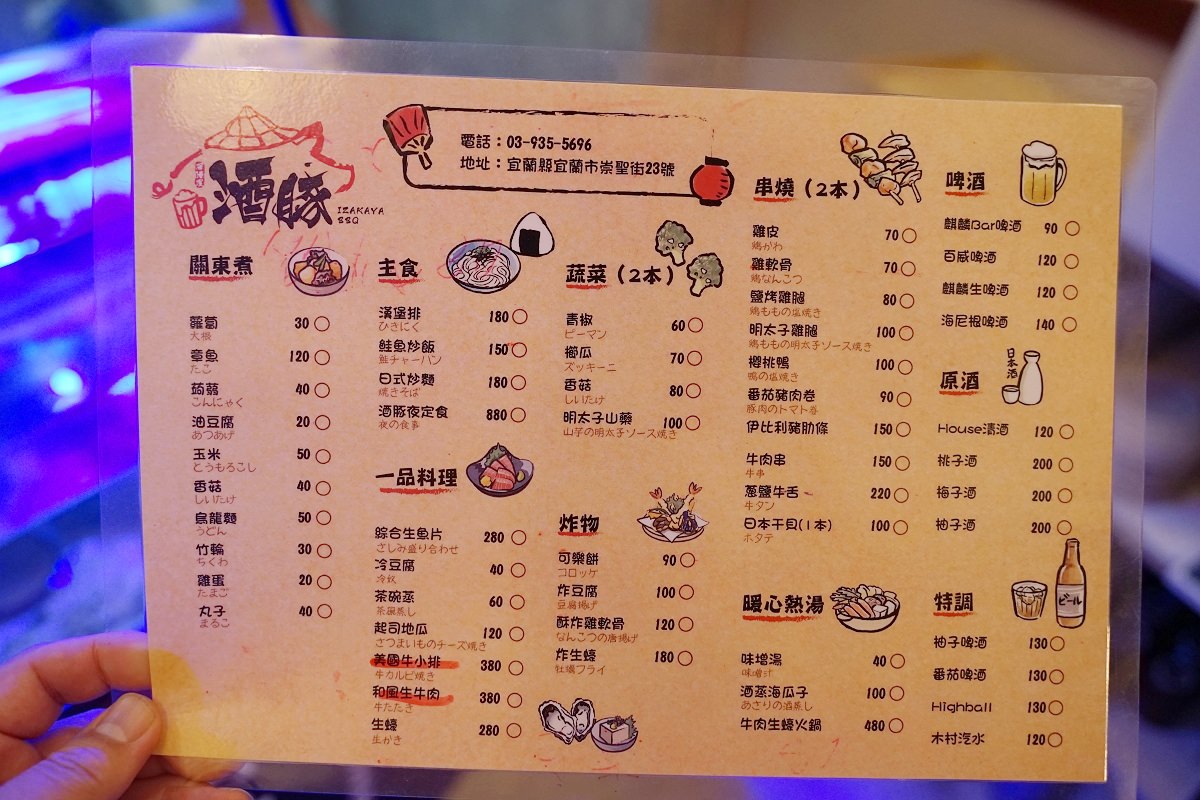 酒豚
IZAKAYA
BBQ
電話：03-935-5696
地址：宜蘭縣宜蘭市崇聖街23號
關東煮
蘿蔔 30
大根
章魚 120
たこ
蒟蒻 40
こんにゃく
油豆腐 20
あつあげ
玉米 50
とうもろこし
香菇 40
しいたけ
烏龍麵 50
うどん
竹輪 30
ちくわ
雞蛋 20
たまご
丸子 40
まるこ
主食
漢堡排 180
ひきにく
鮭魚炒飯 150
鮭チャーハン
日式炒麵 180
焼きそば
酒豚夜定食 880
夜の食事
一品料理
綜合生魚片 280
さしみ盛り合わせ
冷豆腐 40
冷奴
茶碗蒸 60
茶碗蒸し
起司地瓜 120
さつまいものチーズ焼き
美國牛小排 380
牛カルビ焼き
和風生牛肉 380
牛たたき
生蠔 280
生かき
蔬菜（2本）
青椒 60
ピーマン
櫛瓜 70
ズッキーニ
香菇 80
しいたけ
明太子山藥 100
山芋の明太子ソース焼き
炸物
可樂餅 90
コロッケ
炸豆腐 100
豆腐揚げ
酥炸雞軟骨 120
なんこつの唐揚げ
炸生蠔 180
牡蠣フライ
串燒（2本）
雞皮 70
鶏かわ
雞軟骨 70
鶏なんこつ
鹽烤雞腿 80
鶏ももの塩焼き
明太子雞腿 100
鶏ももの明太子ソース焼き
櫻桃鴨 100
鴨の塩焼き
番茄豬肉卷 90
豚肉のトマト巻
伊比利豬肋條 150
牛肉串 150
牛串
蔥鹽牛舌 220
牛タン
日本干貝(1本) 100
ホタテ
暖心熱湯
味增湯 40
味噌汁
酒蒸海瓜子 100
あさりの酒蒸し
牛肉生蠔火鍋 480
啤酒
麒麟Bar啤酒 90
百威啤酒 120
麒麟生啤酒 120
海尼根啤酒 140
原酒
日本酒
House清酒 120
桃子酒 200
梅子酒 200
柚子酒 200
特調
ビール
柚子啤酒 130
番茄啤酒 130
Highball 130
木村汽水 120